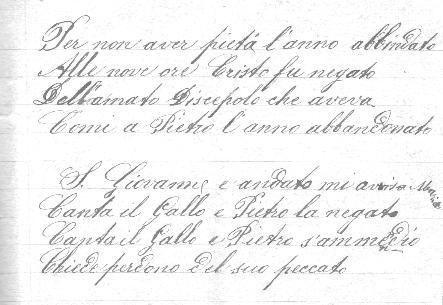 Per non aver pietá l'anno abbindato
Alle nove ore Cristo fu negato
Dell'amato Discepolo che aveva
Comi a Pietro l'anno abbandonato
S. Giovanni e andato mi avvisa Maria
Canta il Gallo e Pietro la negato
Canta il Gallo e Pietro s'ammedió
Chiede perdono del suo peccato